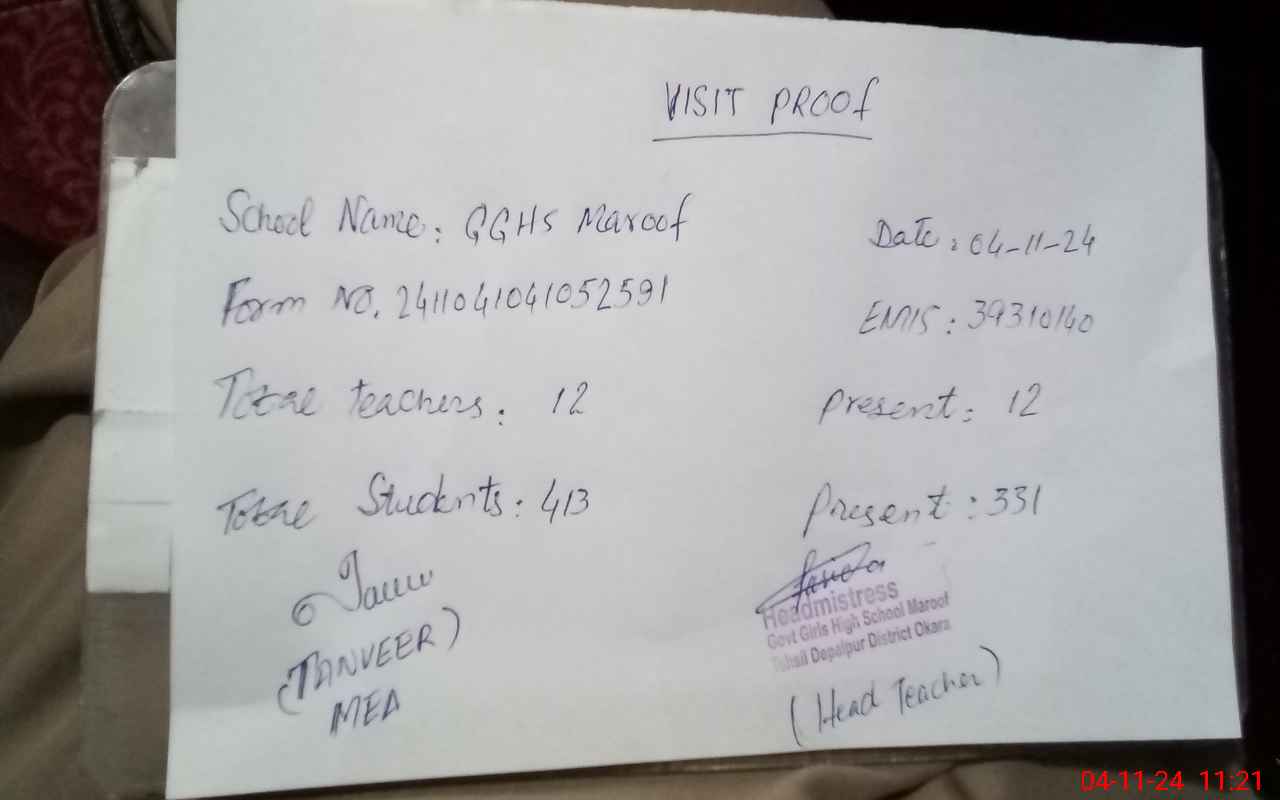 VISIT PROOF
School Name: GGHS Maroof
Date: 04-11-24
Form NO. 2411041041052591
EMIS: 39310140
Total teachers: 12
Present: 12
Total Students: 413
Present: 331
(TANVEER)
MEA
Headmistress
Govt Girls High School Maroof
Tehsil Depalpur District Okara
(Head Teacher)
04-11-24 11:21